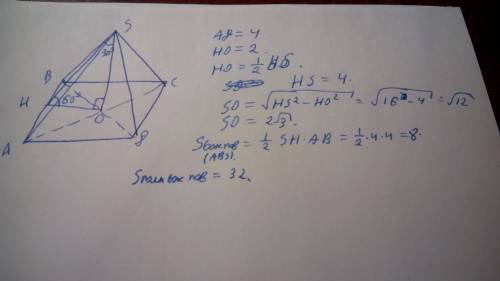 S
30°
B
C
H
60°
O
A
D
AD = 4
HO = 2.
HO = 1/2 HS.
HS = 4.
SO = √(HS² - HO²) = √(16 - 4) = √12
SO = 2√3.
Sбок пов = 1/2 SH · AB = 1/2 · 4 · 4 = 8.
(ABS).
Sполн бок пов = 32.